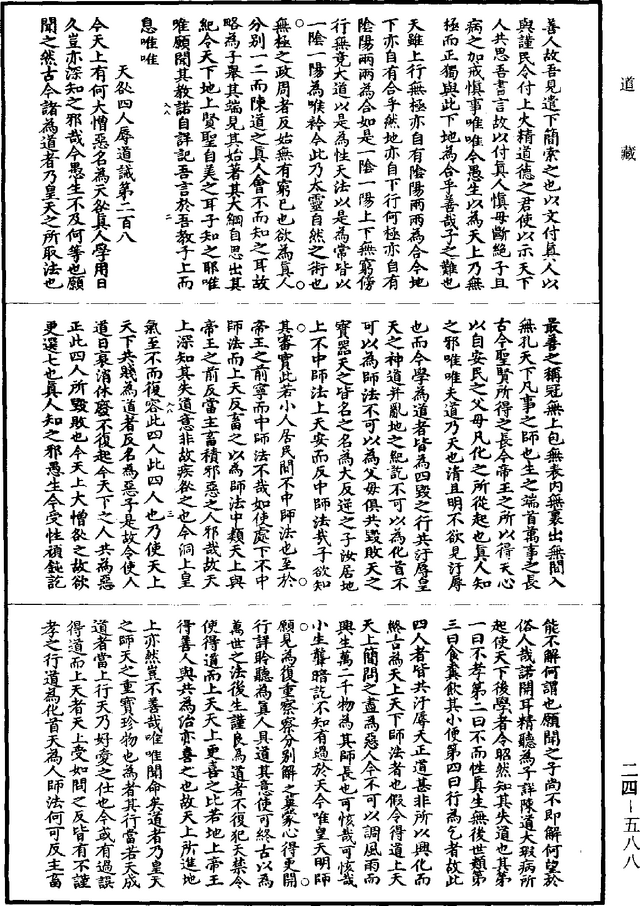 道藏
善人故吾見遺下簡索之也以文付真人以
與謹民令付上大精道德之君使以示天下
人共思吾書言故以付真人慎毋斷絕子且
病之加戒慎事唯唯今愚生以為天上乃無
極而正獨與此下地為合乎善哉子之難也
天雖上行無極亦自有陰陽兩兩為合今地
下亦自有合乎然地亦自下行何極亦自有
陰陽兩兩為合如是一陰一陽上下無窮傍
行無竟大道以是為性天法以是為常皆以
一陰一陽為喉衿今此乃太靈自然之術也
無極之政周者反始無有窮已也欲為真人
分別一二而陳道之真人會不而知之耳故
略為子舉其端見其始著其大綱自思出其
紀令天下地上賢聖自美之耳子知之耶唯
唯願聞其教諾自詳記吾言於吾教子上而
八八 二
息唯唯
天咎四人辱道誡第二百八
今天上有何大憎惡名為天咎真人學用日
久豈亦深知之邪哉今愚生不及何等也願
聞之然古今諸為道者乃皇天之所取法也
最善之稱冠無上包無表內無裏出無間入
無孔天下凡事之師也生之端首萬事之長
古今聖賢所得之長今帝王之所以得天心
以自安民之父母凡化之所從起也真人知
之邪唯唯夫道乃天也清且明不欲見汙辱
也而今學為道者皆為四毀之行共汙辱皇
天之神道并亂地之紀訖不可以為化首不
可以為師法不可以為父母俱共毀敗天之
寶器天之皆名之名為大反逆之子汝居地
上不中師法上天安而反中師法哉子欲知
其審實此若小人居民間不中師法也至於
帝王之前寧而中師法不哉如使處下不中
師法而上天反畜之以為師法中類天上與
帝王之前反當主畜積邪惡之人邪哉故天
上深知其失道意非故疾咎之也今洞上皇
八八 三
氣至不而復容此四人此四人也乃使天上
天下共賤為道者反名為惡子是故令使人
道日衰消休廢不復起今天下之人共為惡
正此四人所毀敗也今天上大憎咎之故欲
更選七也真人知之邪愚生今受性頑鈍訖
能不解何謂也願聞之子尚不即解何望於
俗人哉諾開耳精聽為子詳陳道天瑕病所
起使天下後學者令昭然知其失道也其第
一曰不孝第二曰不而性真生無後世類第
三曰食糞飲其小便第四曰行為乞者故此
四人者皆共汙辱天正道甚非所以興化而
終古為天上天下師法者也假令得道上天
天上簡閱之盡為惡人今不可以調風雨而
興生萬二千物為其師長也可駭哉可駭哉
小生聾暗訖不知有過於天今唯皇天明師
願見為復重察察分別解之冀蒙心得更開
行詳聆聽為真人具道其意使可終古以為
萬世之法後生謹良為道者不復犯天禁令
使得道而上天天上更喜之比若地上帝王
得善人與共為治亦喜之也故天上所進地
上亦然豈不善哉唯唯聞命矣道者乃皇天
之師天之重寶珍物也為者其行當若天成
道者當上行天乃好愛之仕也今或有過誤
得道而上天者天上受如問之反皆有不謹
孝之行道為化首天為人師法何可反主畜
二四－五八八